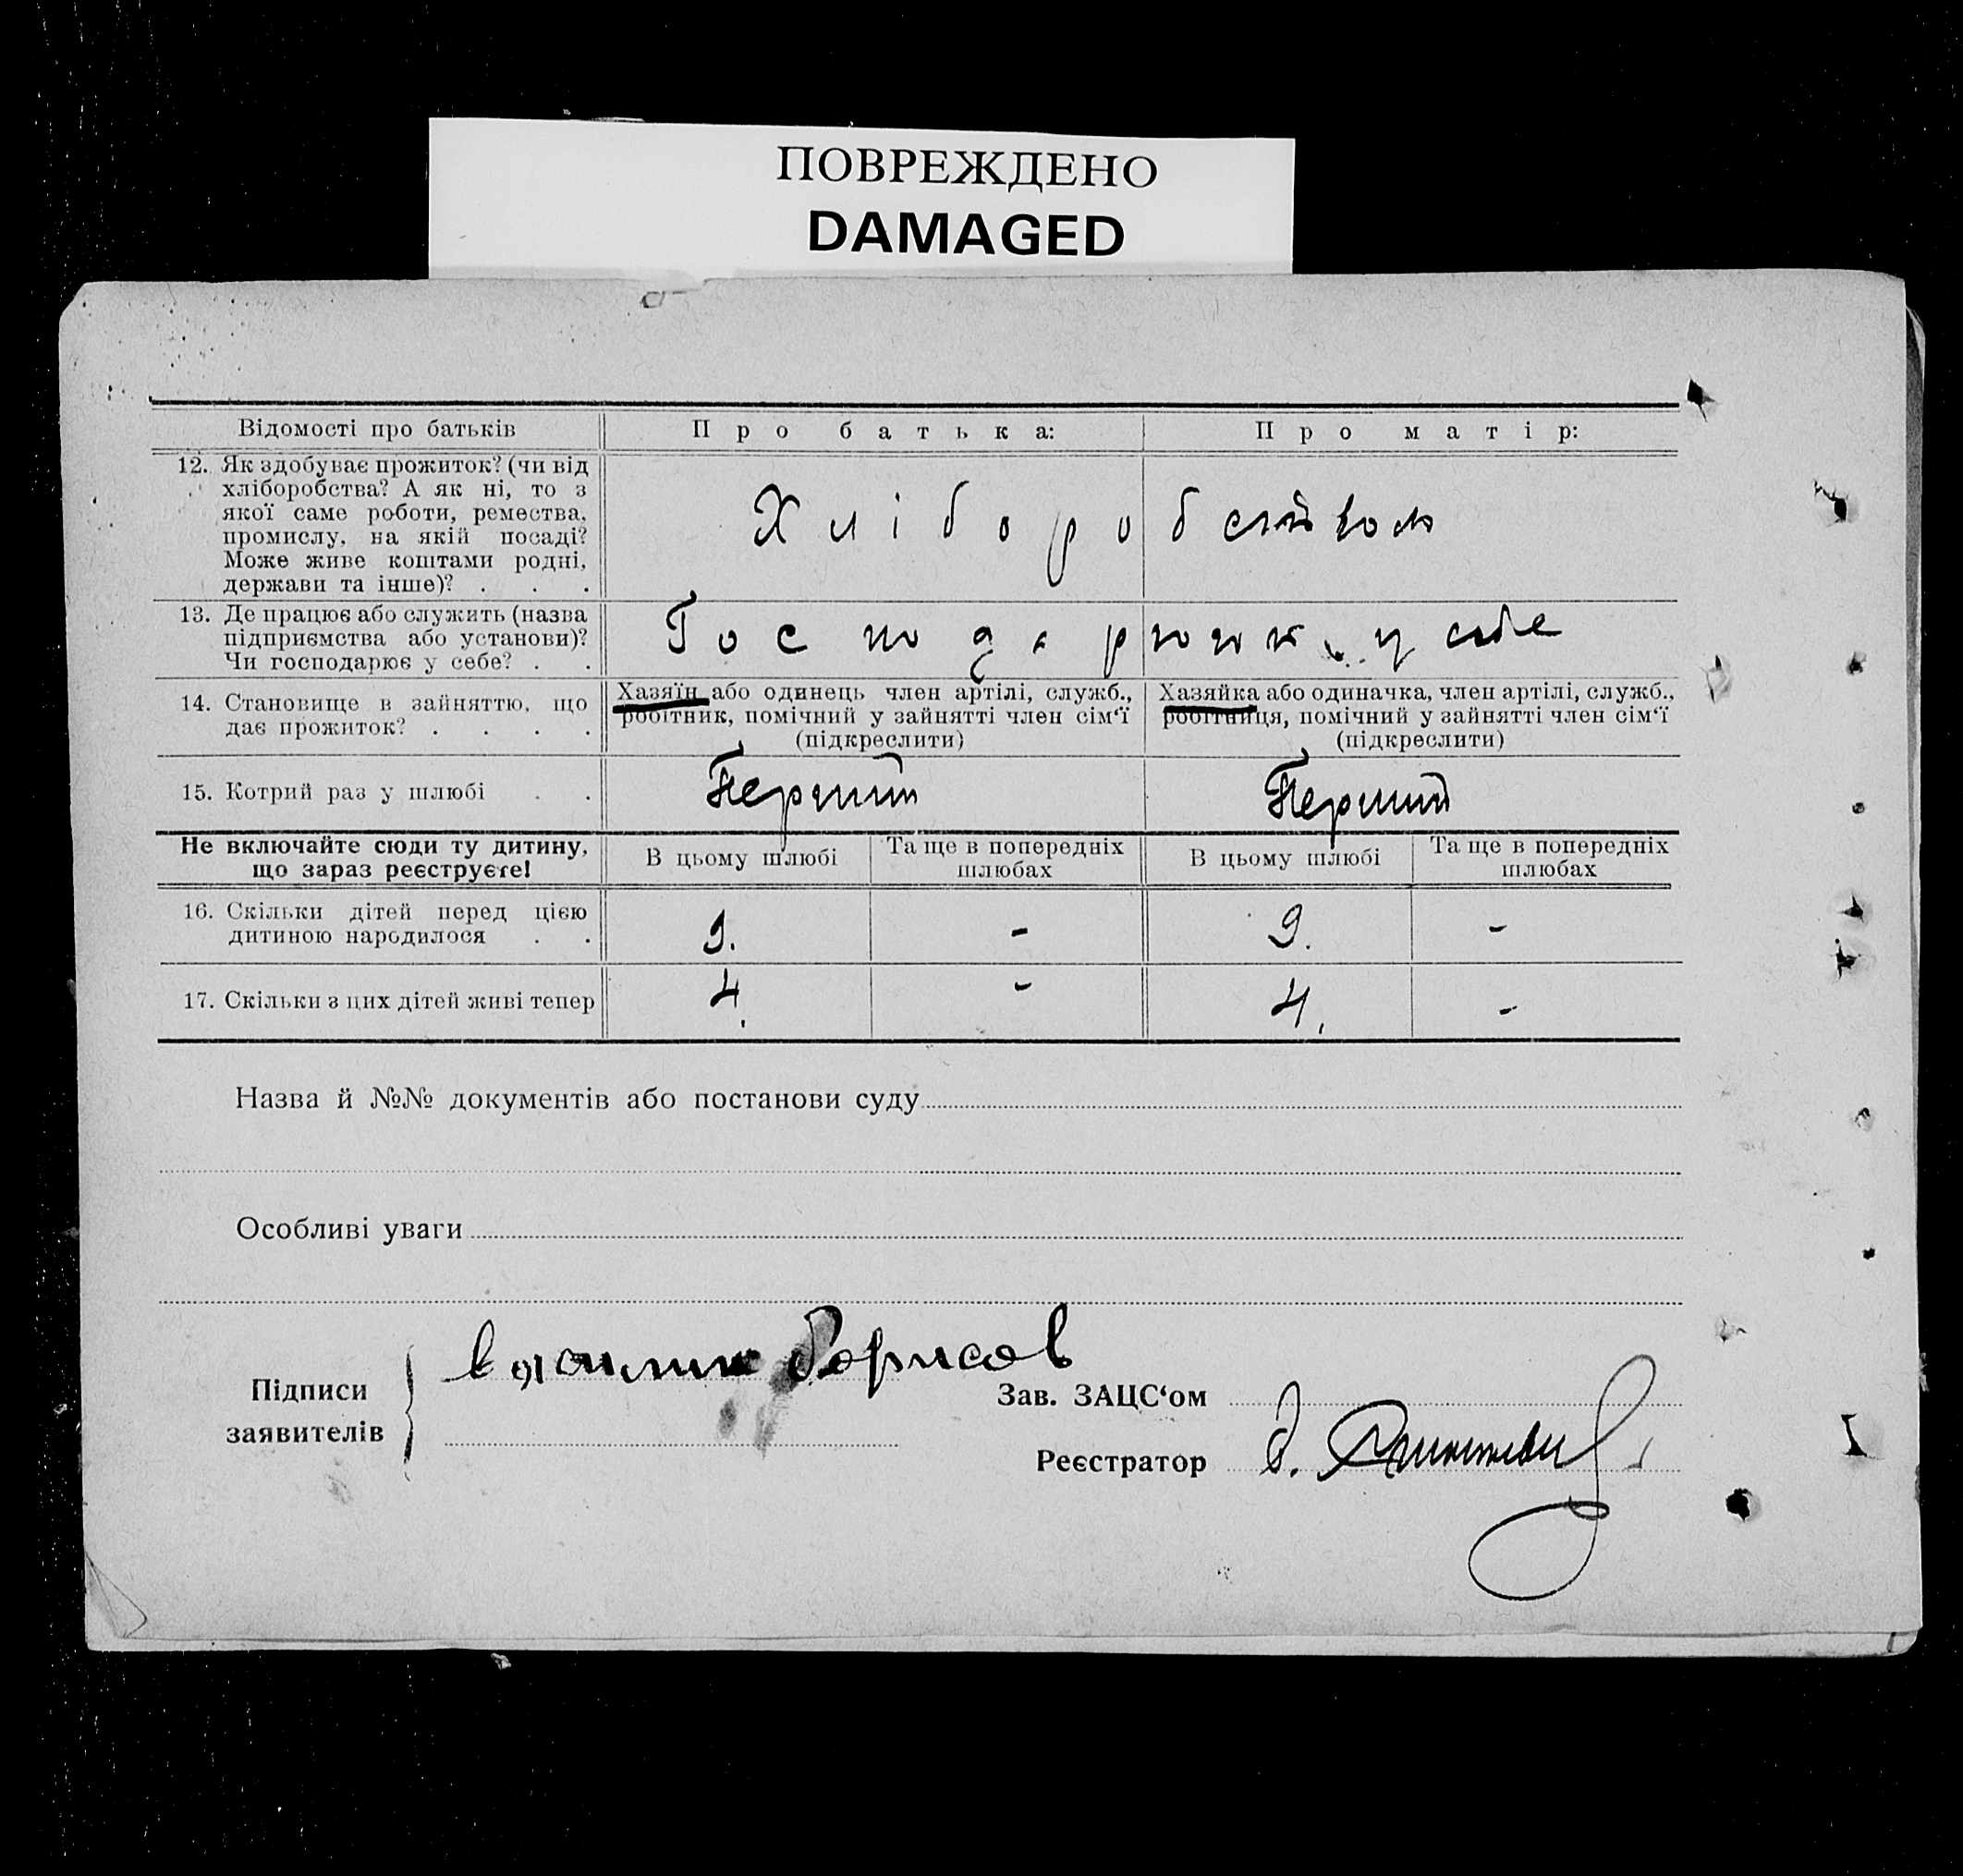 ПОВРЕЖДЕНО
DAMAGED
Відомості про батьків
Про батька:
Про матір:
12. Як здобуває прожиток? (чи від
хліборобства? А як ні, то з
якої саме роботи, ремества,
промислу, на якій посаді?
Може живе коштами родні,
держави та інше)? . . .
Хліборобством
13. Де працює або служить (назва
підприємства або установи)?
Чи господарює у себе? . .
у себе
14. Становище в зайняттю, що
дає прожиток? . . . .
Хазяїн або одинець член артілі, служб.,
робітник, помічний у зайнятті член сім‘ї
(підкреслити)
Хазяйка або одиначка, член артілі, служб.,
робітниця, помічний у зайнятті член сім‘ї
(підкреслити)
15. Котрий раз у шлюбі . .
Перший
Перший
Не включайте сюди ту дитину,
що зараз реєструєте!
В цьому шлюбі
Та ще в попередніх
шлюбах
В цьому шлюбі
Та ще в попередніх
шлюбах
16. Скільки дітей перед цією
дитиною народилося . .
9. - 9. -
17. Скільки з цих дітей живі тепер
4. - 4. -
Назва й №№ документів або постанови суду
Особливі уваги
Підписи
заявителів
Борисов
Зав. ЗАЦС‘ом
Реєстратор